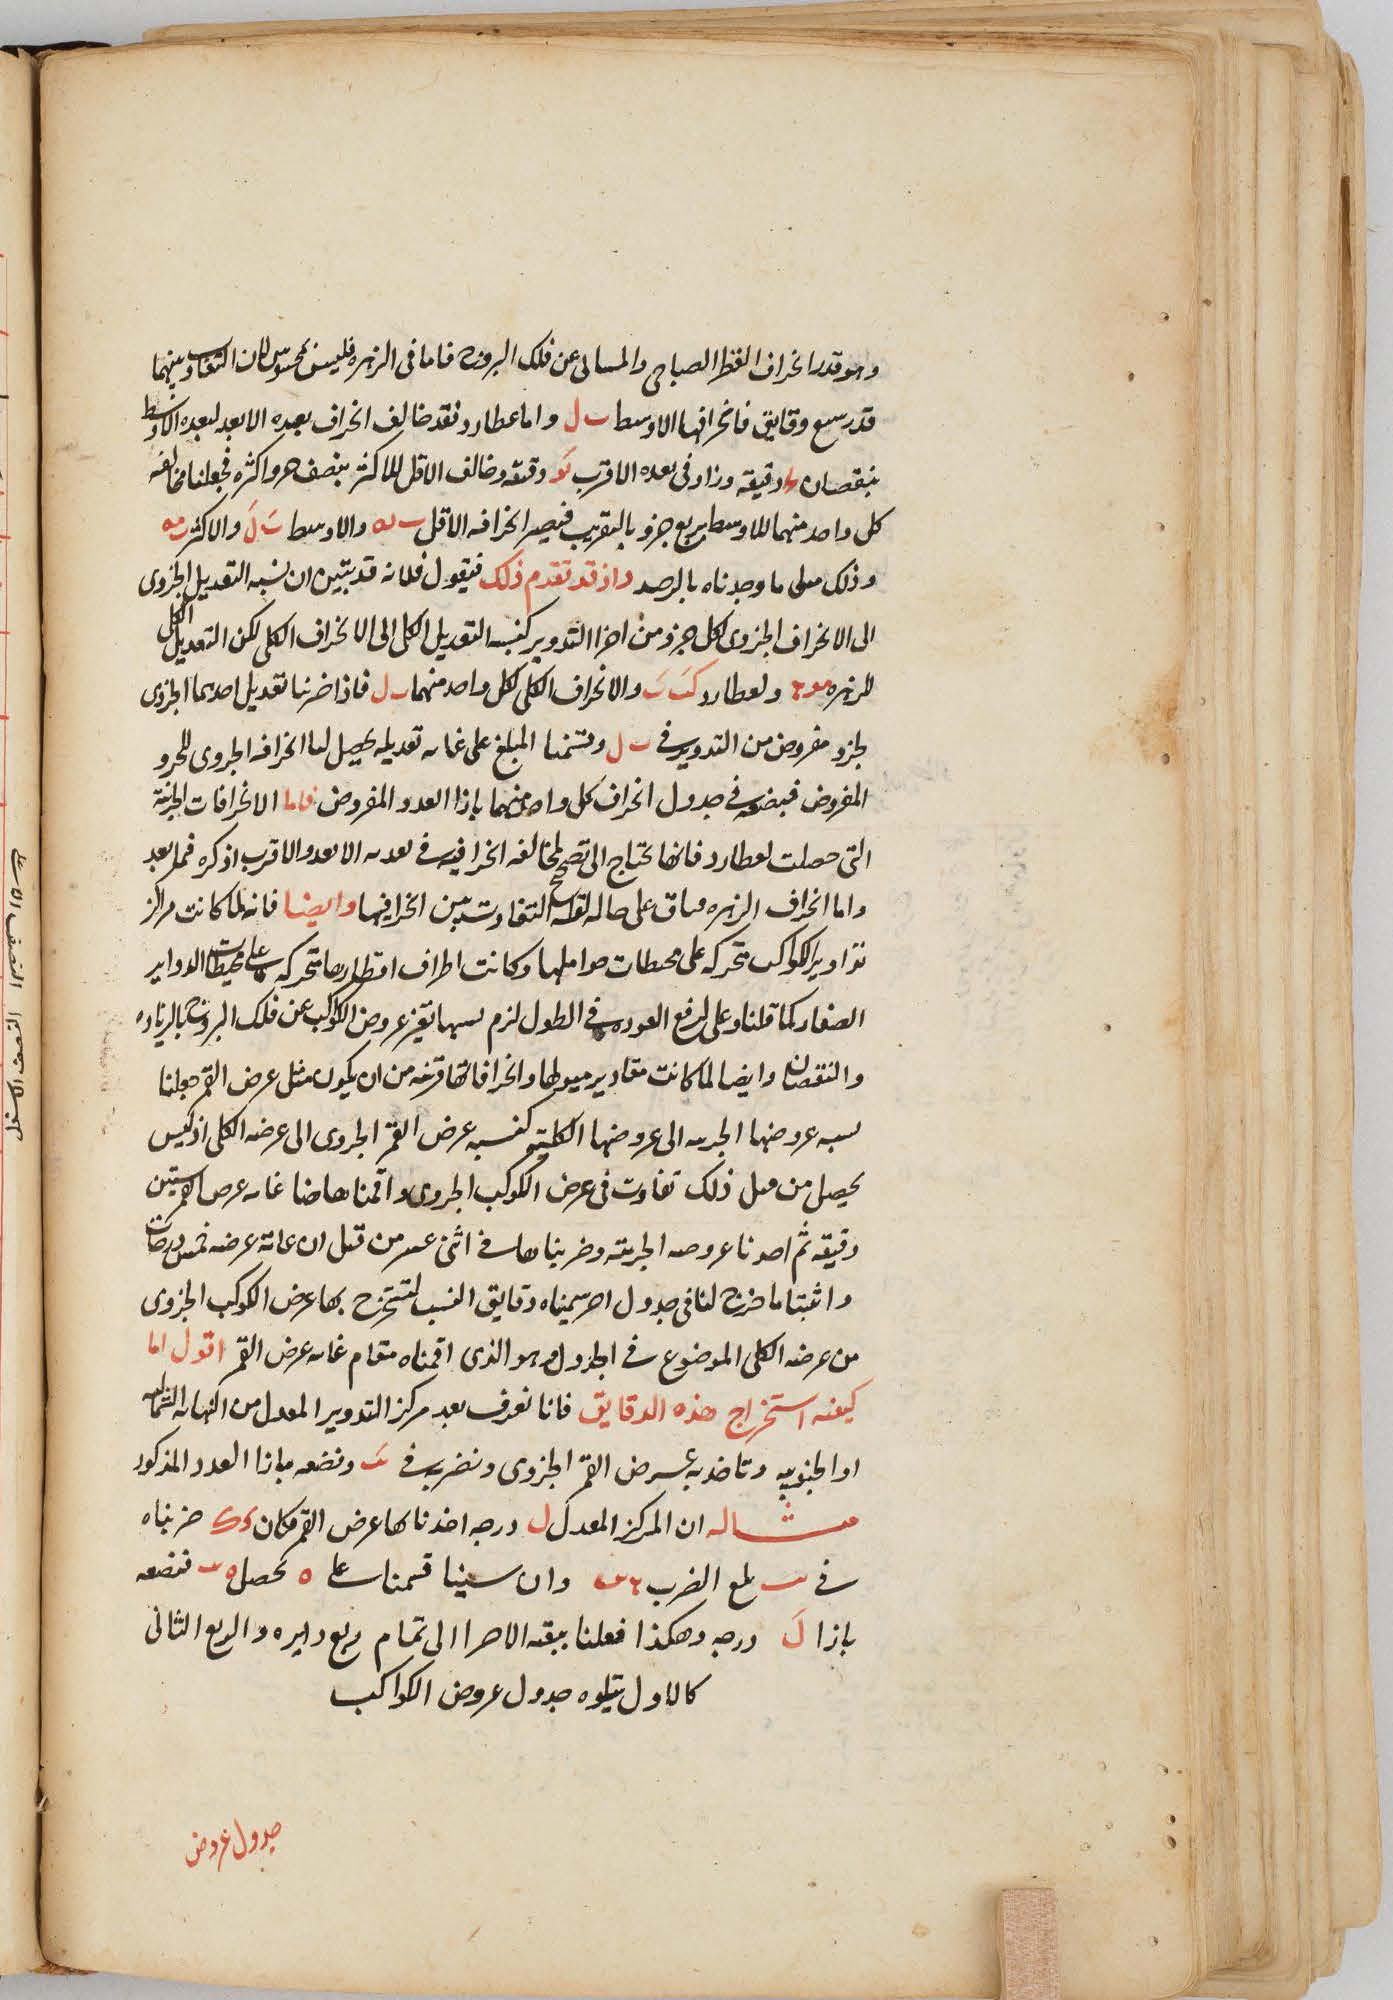 وهو قدر انحراف القطر الصباحي والمسائي عن فلك البروج فاما في الزهره فليس بمحسوس لان التفاوت بينهما
قدر سبع دقايق فانحرافها الاوسط ب ل واما عطارد فقد خالف انحراف بعده الابعد لبعده الاوسط
بنقصان دقيقه وزاد في بعده الاقرب دقيقه وخالف الاقل للاكثر بنصف جزو اكثره فجعلنا مخالفه
كل واحد منهما للاوسط بربع جزو بالتقريب فيصير انحرافه الاقل ب يه والاوسط ب ل والاكثر ب مه
وذلك على ما وجدناه بالرصد واذ قد تقدم ذلك فنقول فلانه قد تبين ان نسبه التعديل الجزوي
الى الانحراف الجزوي لكل جزو من اجزا التدوير كنسبه التعديل الكلي الى الانحراف الكلي لكن التعديل الكلي
للزهره ولعطارد كب ب والانحراف الكلي لكل واحد منهما ب ل فاذا ضربنا تعديل احدهما الجزوي
لجزو مفروض من التدوير في ب ل وقسمنا المبلغ على غايه تعديله يحصل لنا انحرافه الجزوي للجزو
المفروض فيضعه في جدول انحراف كل واحد منهما بازا العدد المفروض فاما الانحرافات الجزئية
التي حصلت لعطارد فانها تحتاج الى تصحيح لمخالفه انحرافيه في بعديه الابعد والاقرب اذكره فيما بعد
واما انحراف الزهره فباق على حاله لقله التفاوت بين انحرافيها وايضا فانه لما كانت مراكز
تداوير الكواكب متحركه على محيطات حواملها وكانت اطراف اقطارها متحركه على محيطات الدواير
الصغار كما قلنا وعلى ارباع العوده في الطول لزم بسببها تغير عروض الكواكب عن فلك البروج بالزياده
والنقصان وايضا لما كانت مقادير ميولها وانحرافاتها قريبه من ان يكون مثل عرض القمر جعلنا
نسبه عروضها الجزئيه الى عروضها الكليه كنسبه عرض القمر الجزوي الى عرضه الكلي اذ ليس
يحصل من قبل ذلك تفاوت في عرض الكوكب الجزوي واقمنا هاهنا غايه عرض القمر ستين
دقيقه ثم اخذنا عروضه الجزئيه وضربناها في اثني عشر من قبل ان غايه عرضه خمس درجات
واثبتنا ما خرج لنا في جدول اخر سميناه دقايق النسب لتستخرج بها عرض الكوكب الجزوي
من عرضه الكلي الموضوع في الجدول وهو الذي اقمناه مقام غايه عرض القمر اقول اما
كيفيه استخراج هذه الدقايق فانا نعرف بعد مركز التدوير المعدل من النهايه الشماليه
او الجنوبيه وناخذ به عرض القمر الجزوي ونضربه في يب ونضعه بازا العدد المذكور
مثاله ان المركز المعدل ل درجه اخذنا بها عرض القمر فكان ضربناه
في يب بلغ الضرب وان سينا قسمناه على ه يحصل فنضعه
بازا ل درجه وهكذا فعلنا ببقيه الاجزا الى تمام ربع دايره والربع الثاني
كالاول يتلوه جدول عروض الكواكب
جدول عروض